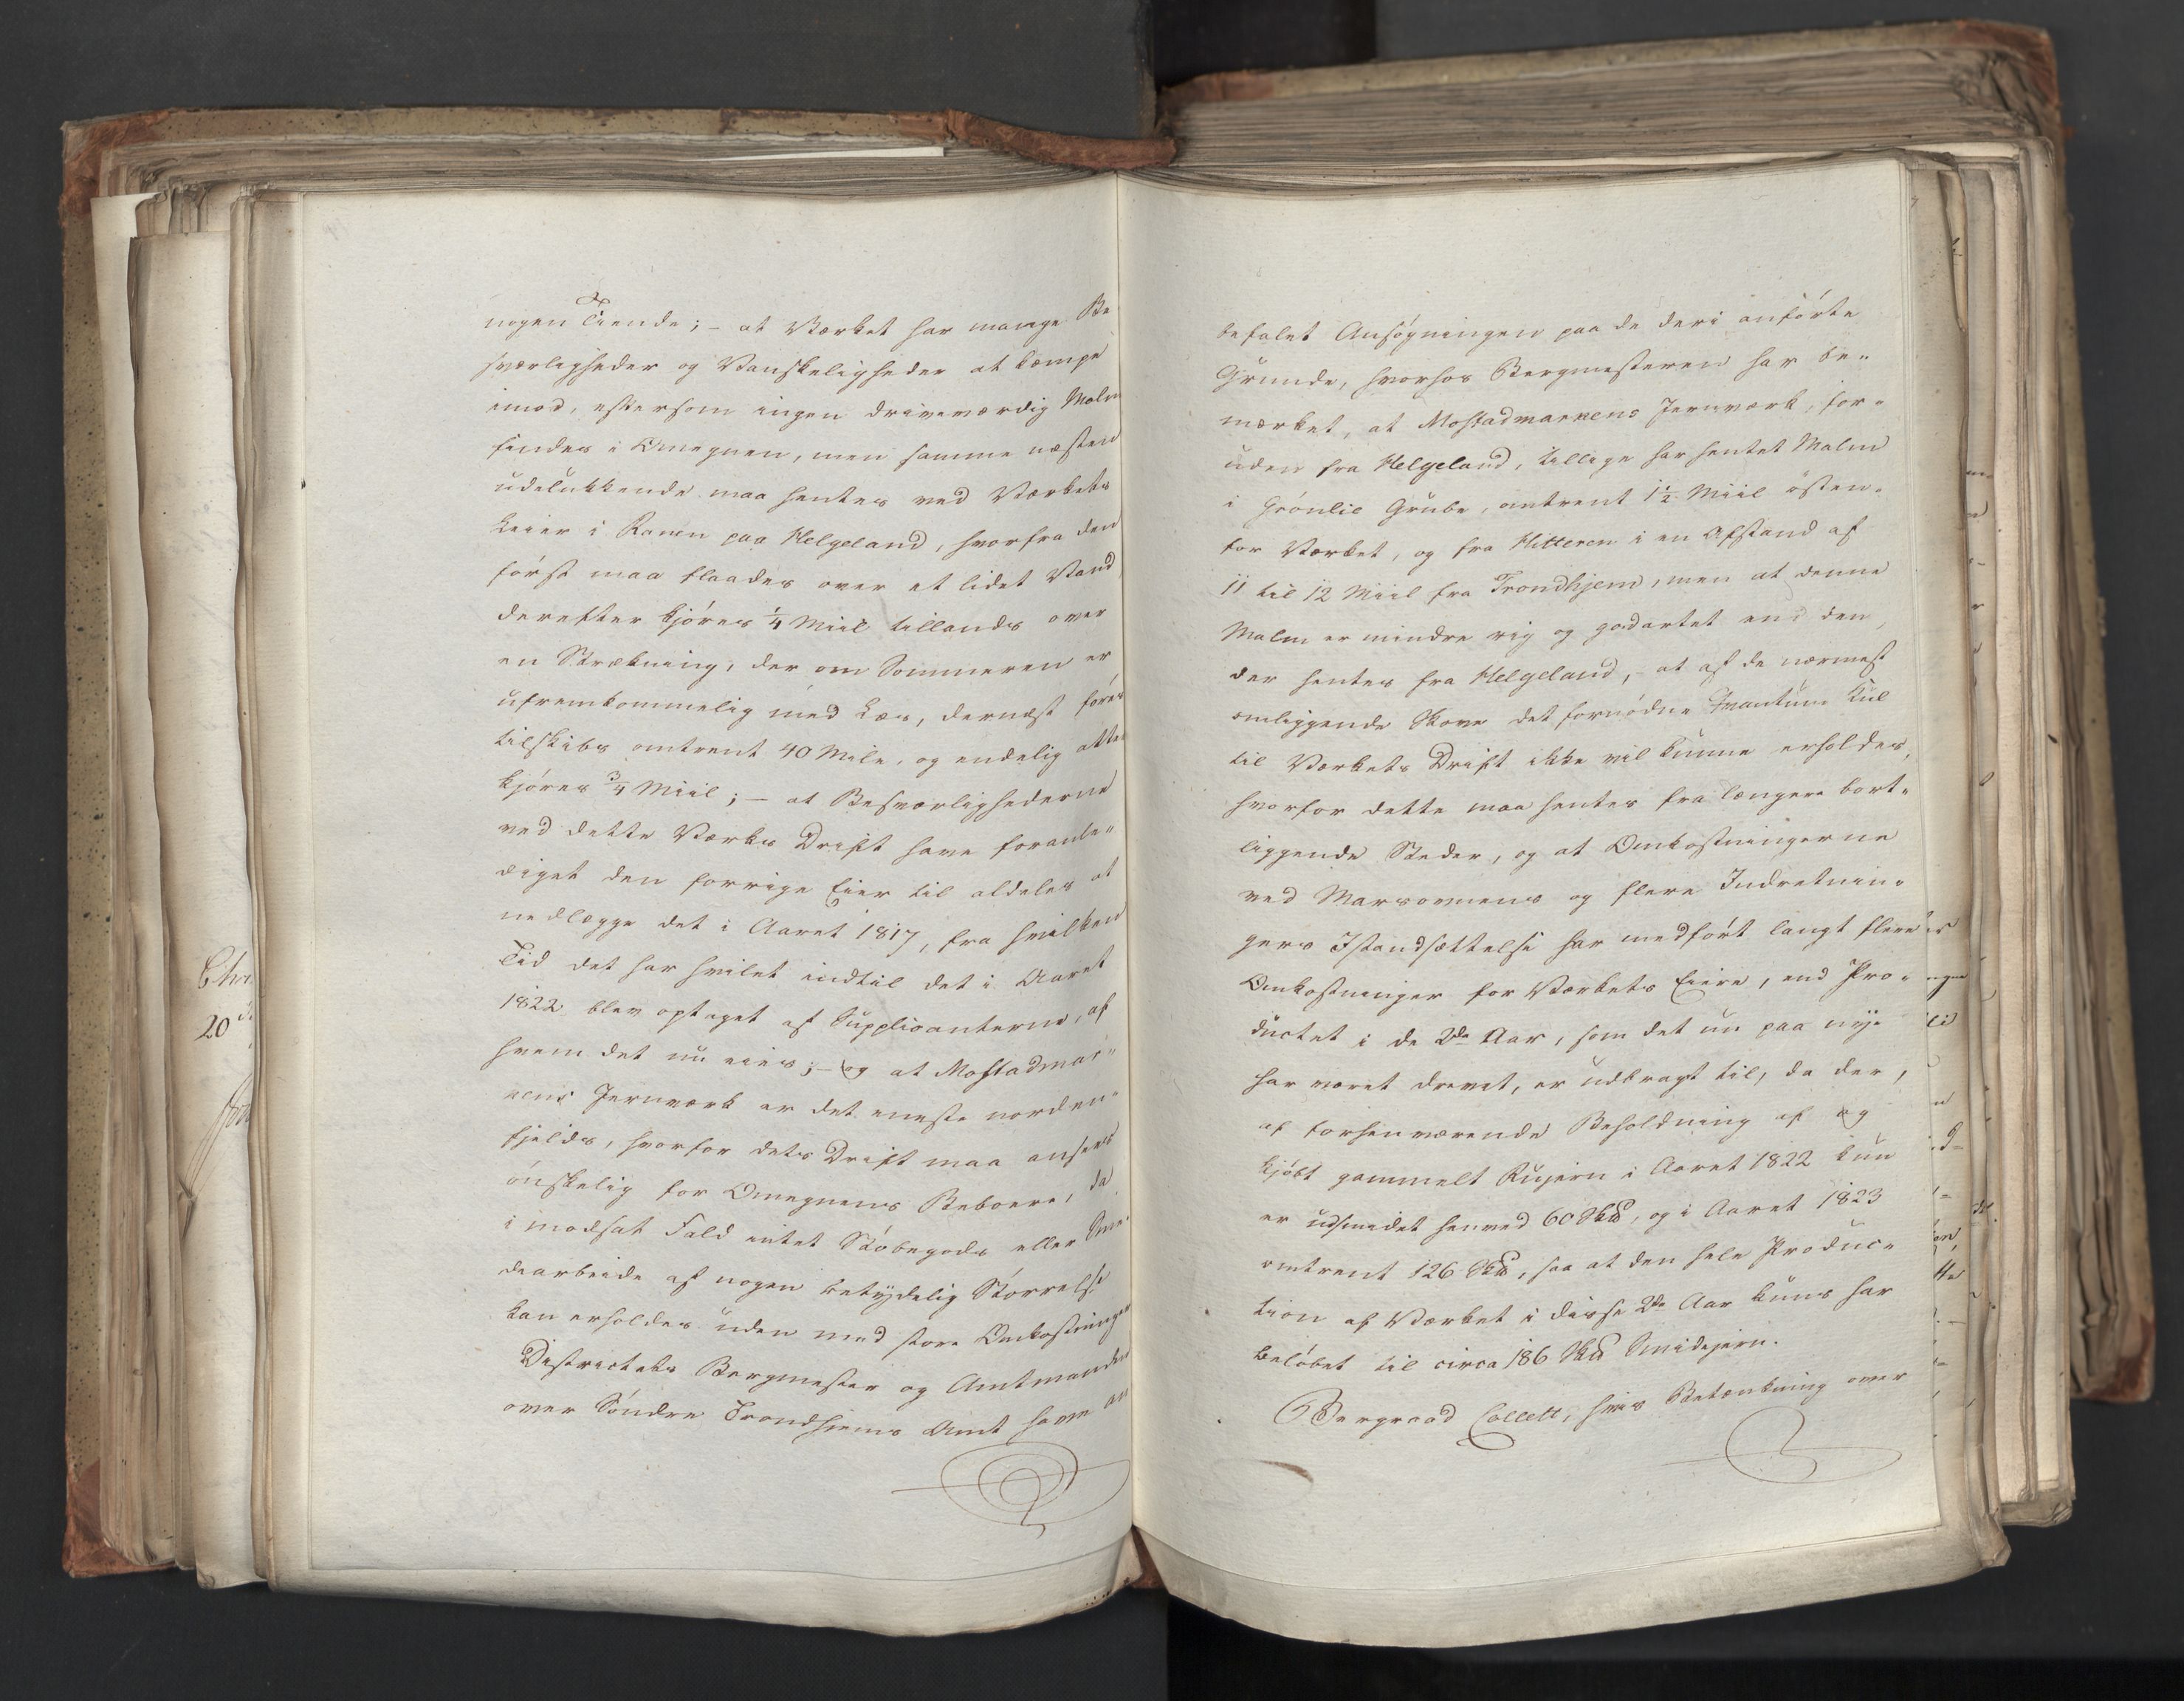 nogen Tiende; – at Værket har mange Be
sværligheder og Vanskeligheder at kæmpe
imod, eftersom ingen driveværdig Malm
findes i Omegnen, men samme næsten
udelukkende maa hentes ved Værkets
Leier i Ranen paa Helgeland, hvorfra den
först maa flaades over et lidet Vand,
derefter kjöres 1/4 Miil tillands over
en Strækning, der om Sommeren er
ufremkommelig med Læs, dernæst föres
tilskibs omtrent 40 Mile, og endelig atter
kjöres 3/4 Miil; – at Besværlighederne
ved dette Værks Drift have foranle„
diget den forrige Eier til aldeles at
nedlægge det i Aaret 1817, fra hvilken
Tid det har hvilet indtil det i Aaret
1822 blev optaget af Supplicanterne, af
hvem det nu eies; – og at Mostadmar„
kens Jernværk er det eneste norden„
fjelds, hvorfor dets Drift maa ansees
önskelig for Omegnens Beboere, da
i modsat Fald intet Stöbegods eller Sme„
dearbeide af nogen betydelig Störrelse
kan erholdes uden med store Omkostninger
Districtets Bergmester og Amtmanden
over Söndre Trondhjems Amt have an
befalet Ansögningen paa de deri anförte
Grunde, hvorhos Bergmesteren har be„
mærket, at Mostadmarkens Jernværk, for„
uden fra Helgeland, tillige har hentet Malm
i Grönlie Grube, omtrent 1 1/2 Miil östen„
for Værket, og fra Hitteren i en Afstand af
11 til 12 Miil fra Trondhjem, men at denne
Malm er mindre rig og godartet end den,
der hentes fra Helgeland, – at af de nærmest
omliggende Skove det fornödne Qvantum Kul
til Værkets Drift ikke vil kunne erholdes,
hvorfor dette maa hentes fra længere bort„
liggende Steder, og at Omkostningerne
ved Marsovnens og flere Indretnin„
gers Istandsættelse har medfört langt flere
Omkostninger for Værkets Eiere, end Pro„
ductet i de 2de Aar, som det nu paa nye
har været drevet, er udbragt til, da der,
af forhenværende Beholdning af og
kjöbt gammelt Rujern i Aaret 1822 kun
er udsmedet henved 60 Sk℔, og i Aaret 1823
omtrent 126 Sk℔, saa at den hele Produc„
tion af Værket i disse 2de Aar kuns har
belöbet til circa 186 Sk℔ Smidejern.
Bergraad Collett, hvis Betænkning over
Chri
20